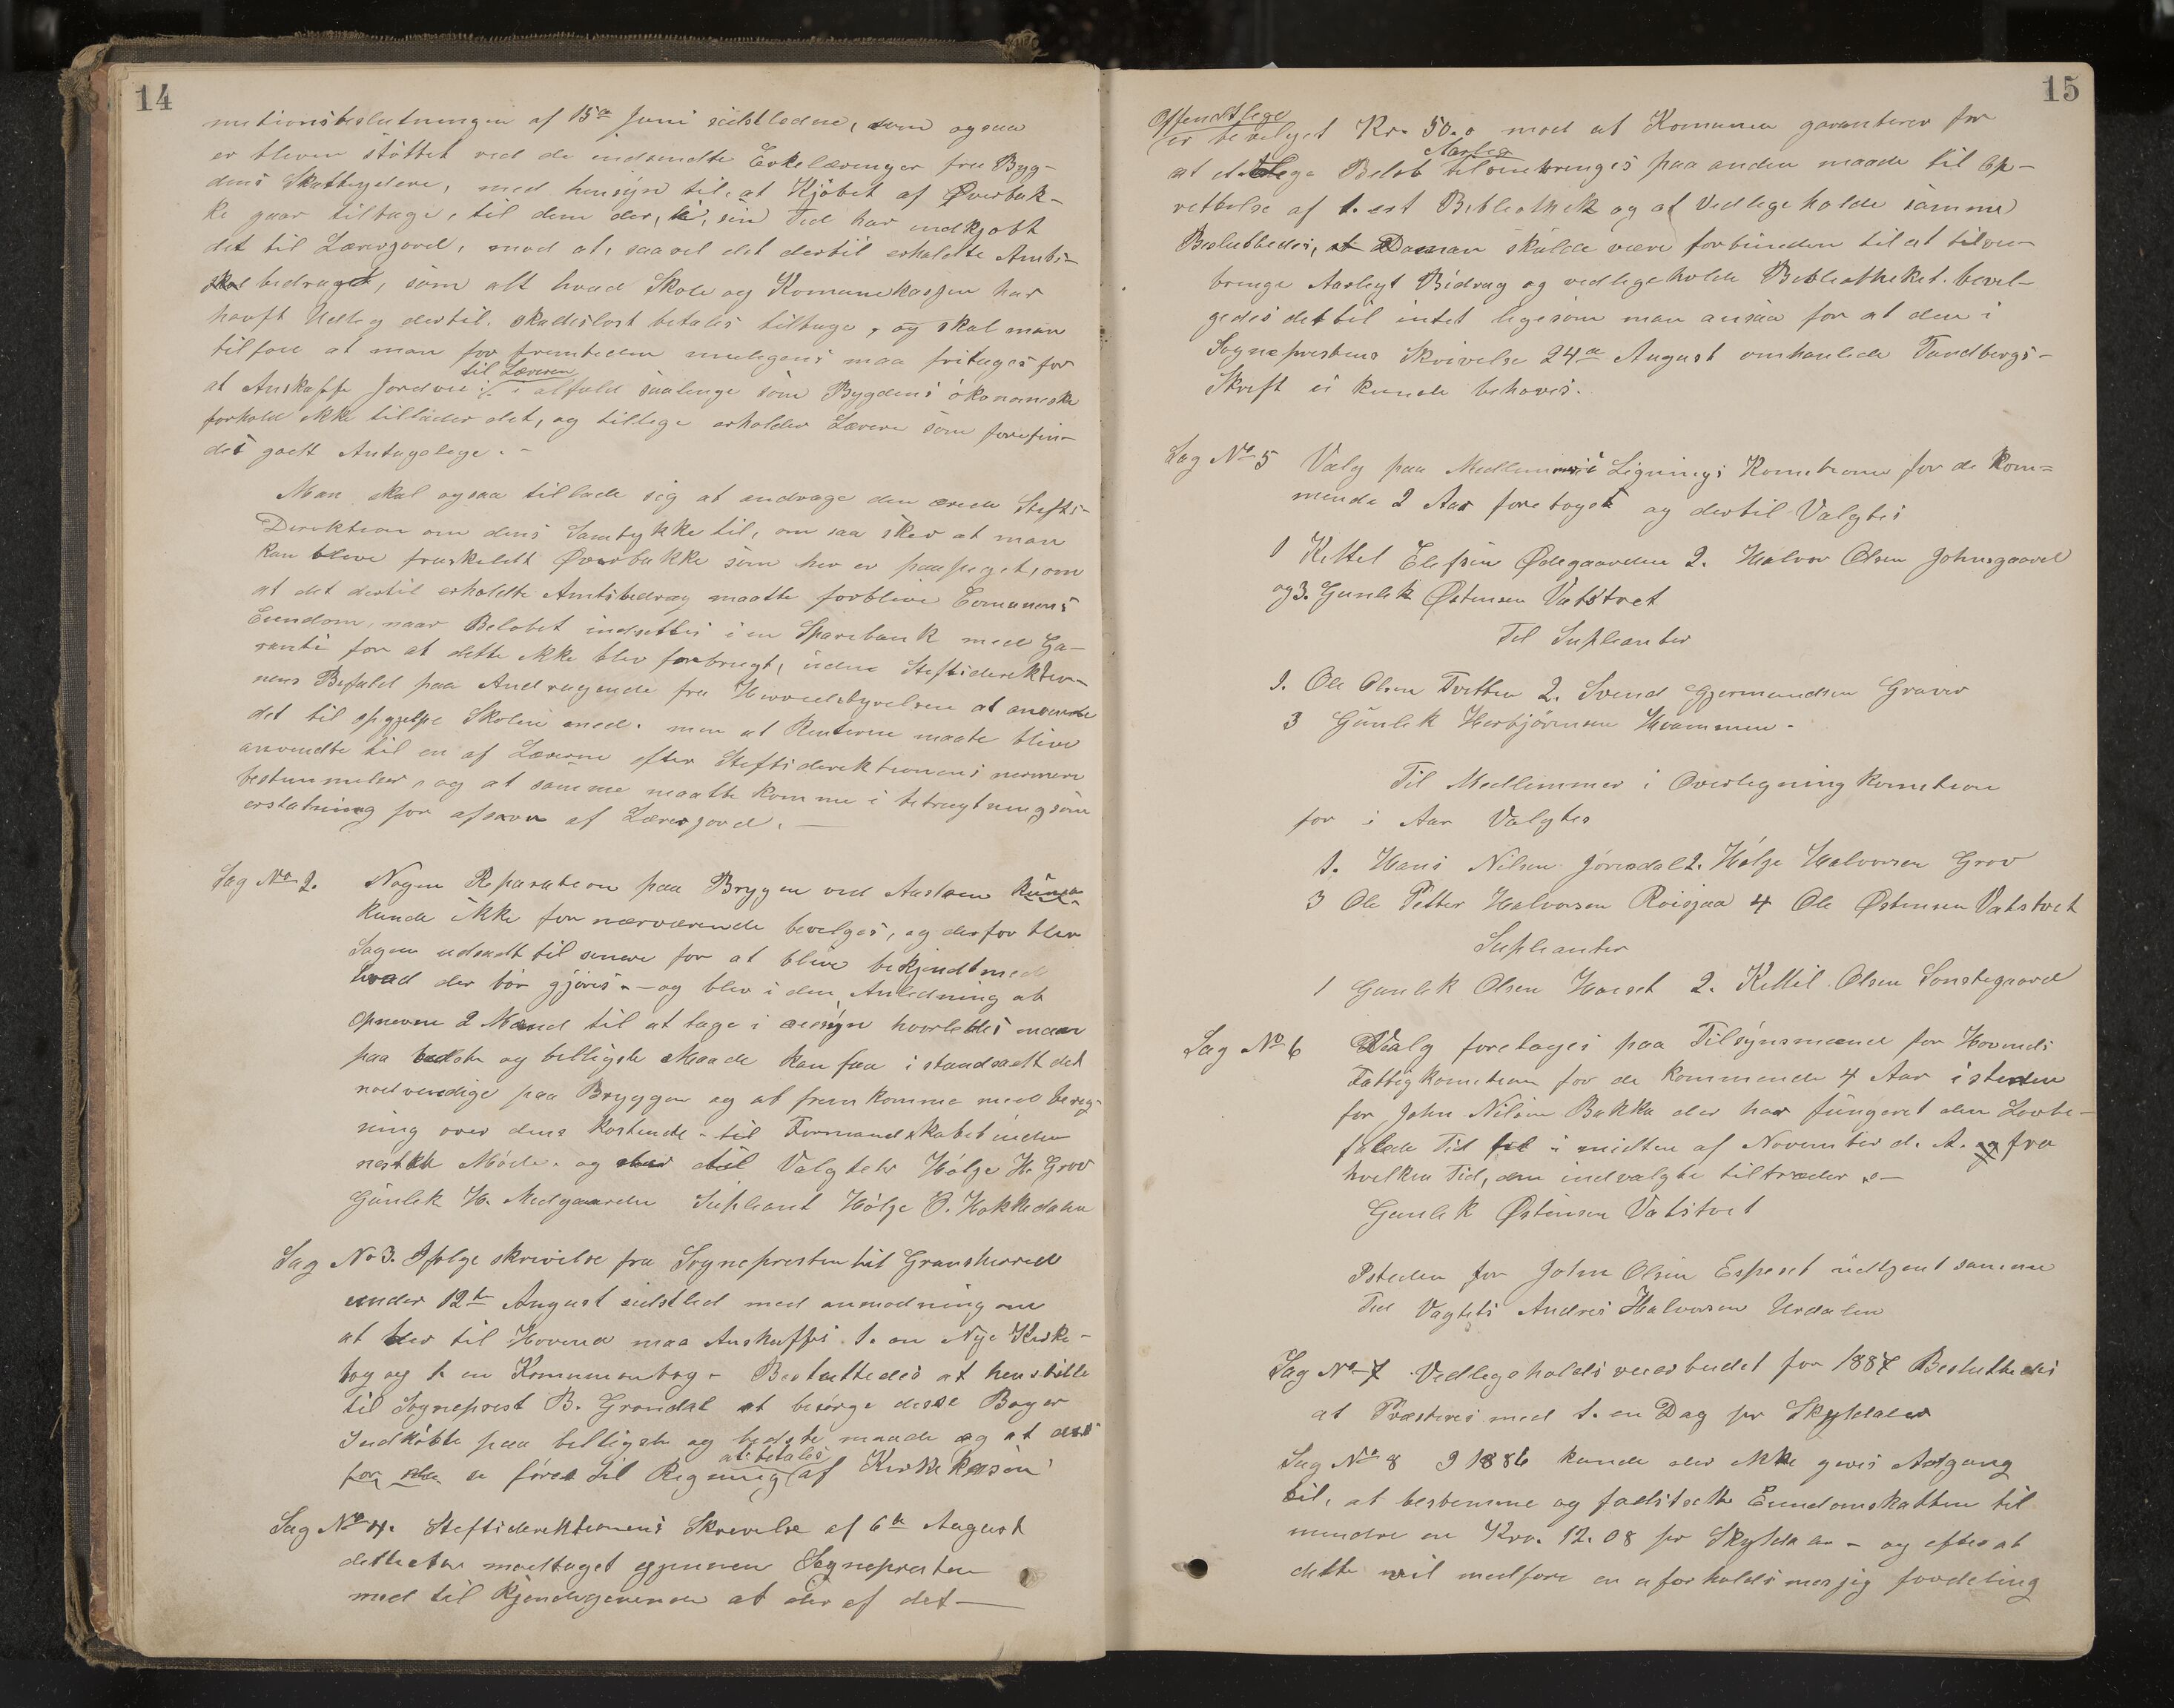 14
mationsbeslutningen af 15de Juni sidstledne, som ogsaa
er bleven støttet ved de indsendte Erkelæringer fra Byg-
dens Skatteydere, med hensýn til, at Kjöbet af Øverbak-
ke gaar tilbage, til dem der, i, sin Tid har indkjobt
det til Lærerjord, mod at, saavel det dertil erholdte Amts-
bedraget, som alt hvad Skole og Komunekassen har
havft Udleg dertil. skadeslost betales tilbage, og skal man
tilfoie at man for fremtiden muligens maa fritages for
til Læreren
at Anskaffe Jordvei i alfald saalenge som Bygdens ókonomiske
forhold ikke tillader det, og tillige erholder Lærere som forefin-
des godt Antagelige. -
Man skal ogsaa tillade sig at andrage den ærede Stifts-
Direktion om dens Samtykke til, om saa skeer at man
kan blive fraskeldt Øverbakke som her er paapeget, om
at det dertil erholdte Amtsbedrag maatte forblive Comunens
Eiendom, naar Belobet indsettes i en Sparebank med Ga-
ranti for at dette ikke blev forbrugt, uden Stiftsdirektio-
nens Befald paa Andragende fra Herredsstyrelsen at anvende
det til opgjelpe Skolen med. men at Renterne maate blive
anvendte til en af Lærerne efter Stiftsderektionens nermere
bestemmelser, og at samme maatte komme i betragtning som
erstatning for afsavn af Lærerjord. —
Sag No 2. Nogen Reparation paa Bryggen ved Aaslem
kunde ikke for nærværende bevelges, og derfor blev
Sagen udsadt til senere for at blive bekjendt med
hvad der bør gjöres. - og blev i den Anledning at
Opnevne 2 Mænd til at tage i øiesýn hvorledes man
paa bedste og billigste Maade kan faa i standsadt det
nodvendige paa Bryggen og at fremkomme med bereg-
ning over dens kostende - til Formandskabet inden
neste Möde. og til Valgtes Hólge H. Grov
Günlek H. Medgaarden Supleant Hólge O. Hakkedalen
Sag No 3. Ifølge skrivelse fra Sognepresten til Gransherred
under 12te August sidstled med anmodning om
at der til Hovind maa Anskaffes 1. en Nye Kirke-
bog og 1. en Komunionbog - Besluttedes at henstille
til Sogneprest B. Grondal at besörge disse Boger
Indkóbte paa billigste og bedste maade og at des
at betales
for se föres til Regning af Kirkekassen
Sag No 4. Stiftsderektionens Skrivelse af 6te August
dette Aar modtaget gjennem Sognepresten
med til Kjendegevende at der af det —
15
Offendtlege
er bevelget Kr. 50.0 mod at Komunen garanterer for
Aarleg
at det lege Belob tilveiebringes paa anden maade til Op-
rettelse af 1. et Bebliothek og at Vedlege holde samme
Besluttedes, at Daman skulde være forbunden til at tilveie-
bringe Aarlegt Bidrag og vedlegeholde Bebleotheket. bevel-
gedes dettil intet legesom man ansaa for at den i
Sogneprestens Skrivelse 24de August omhanlede Tandbergs-
Skrift ei kunde behoves.
Sag No 5 Valg paa Medlemmer i Lignings Komitione for de kom-
mende 2 Aar foretoges og dertil Valgtes
1 Kittel Elefsen Ødegaarden 2. Halvor Olsen Johnsgaard
og 3. Gunlek Østensen Vatstvet
Til Supleanter
1. Ole Olsen Tvetten 2. Svend Gjermundsen Graver
3 Günlek Herbjörnsen Hvammen -
Til Medlemmer i Overlegning komition
for i Aar Valgtes
1. Hans Nilsen Jörisdal 2. Hólge Halvorsen Grov
3 Ole Petter Halvorsen Roisjaa 4 Ole Østensen Vatstvet
Supleanter
1 Gunlek Olsen Haeset 2. Kittil Olsen Sonstegaard
Sag No 6 Valg foretoges paa Tilsýnsmænd for Hovinds
Fattigkomition for de kommende 4 Aar isteden
for John Nilsen Bakka der har füngeret den Lovbe-
falede Tid i midten af November d. A. fra
hvelken Tid, den indvalgte tiltræder. -
Gunlek Østensen Vatstvet
Isteden for John Olsen Espeset üdtjent samme
Tid Vagtes Andres Halvorsen Urdalen
Sag No 7 Vedlegeholds veiarbeidet for 1887 Besluttedes
at Præsteres med 1. en Dag pr Skylddaler
Sag No 8 I 1886 kunde der ikke geves Adgang
til, at bestemme og fadstsette Eiendomskatten til
mindre en Kro. 12.08 pr Skylddaler - og efter at
dette vil medfore en uforholdsmesjig fordeling